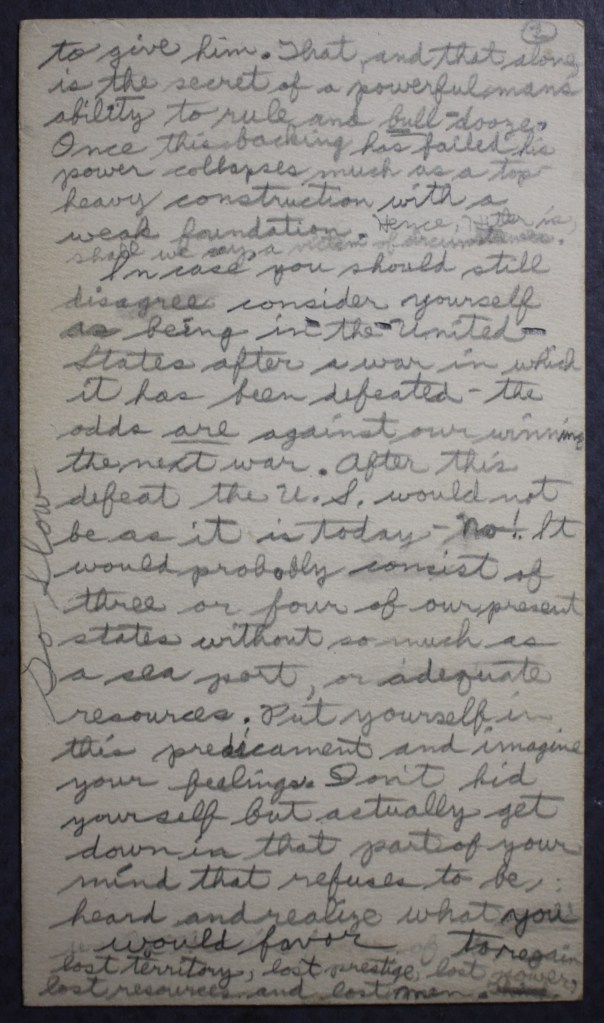 3
to give him. That, and that alone,
is the secret of a powerful mans
ability to rule and bull-dooze.
Once this backing has failed his
power collapses much as a top
heavy construction with a
weak foundation. Hence, Hitler is,
shall we say, a victim of circumstances.
In case you should still
disagree consider yourself
as being in-the-United-
States after a war in which
it has been defeated - the
odds are against our winning
the next war. After this
defeat the U. S. would not
be as it is today - No! It
would probodly consist of
three or four of our present
states without so much as
a sea port, or adequate
resources. Put yourself in
this predicament and imagine
your feelings. Don't kid
yourself but actually get
down in that part of your
mind that refuses to be
heard and realize what you
would favor to regain
lost territory, lost prestige, lost power,
lost resources and lost men.
Go Slow